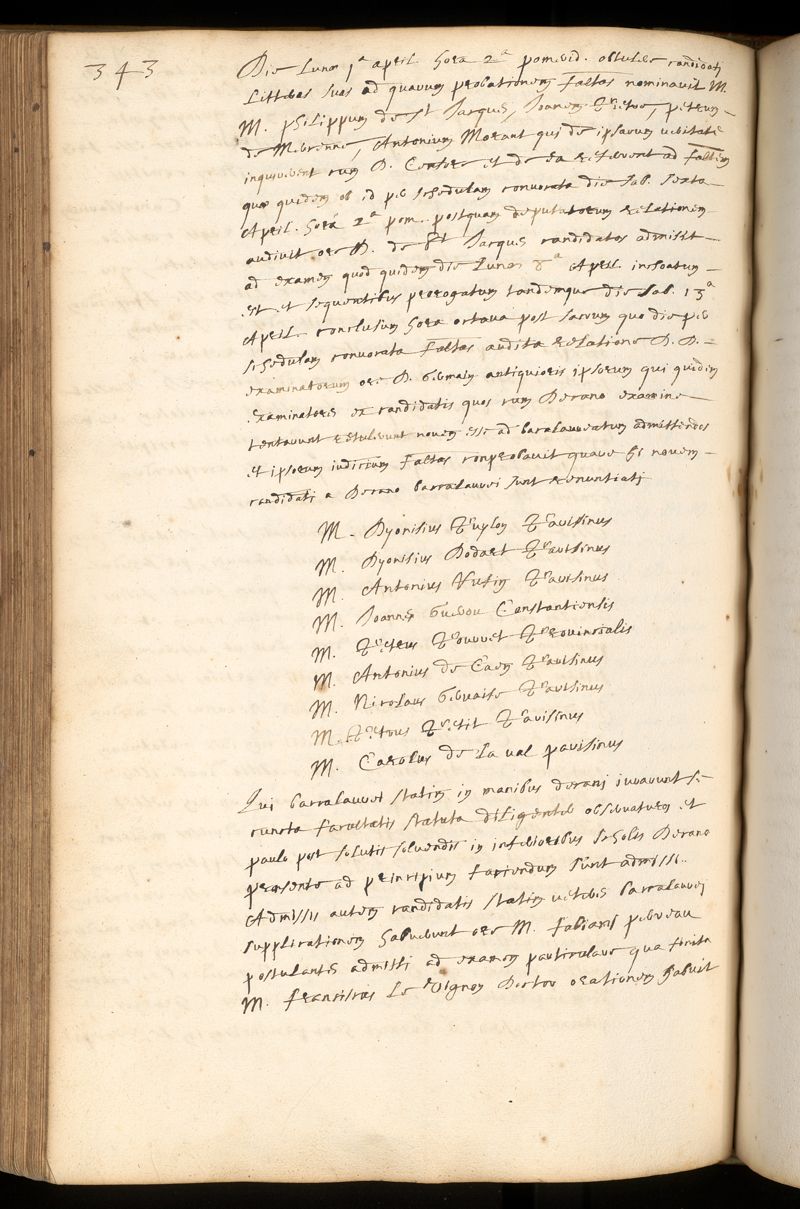 343
Die Lunæ 1ª april. hora 2ª pomerid. obtulere candidati
Litteras suas ad quarum probationem facltas nominavit M
M. philippum de St Jacques, Joanem Pietre, petrum
de Mercenne, Antonium Morant qui de ipsarum veritate
inquirerent cum D. Censore et de ea referrent ad facltem
quæ quidem ob id per schedulam convocata die Sab. sexta
April. hora 2ª pom. postquam deputatorum relationem
audivit ore D. de St Jacques candidatos admisit
ad examen quod quidem die Lunæ 8ª April. inchoatum
est et sequentibus prorogatum tandemque die Sab. 13ª
April. conclusum hora octava post sacrum quo die per
schedulam convocata facltas audita relatione D. D.
examinatorum ore D. Germain antiquioris ipsorum qui quidem
examinatores ex candidatis quos cum Decano examine
tentarunt retulerunt novem esse ad baccalaureatum admittendos
et ipsorum iudicium facltas comprobavit quare hi novem
candidati a Decano baccalaurei sunt renuntiati
M. Dyonisius Puylon Parisinus
M. Dyonisius Dodart Parisinus
M. Antonius Parisinus
M. Joannes Constantiensis
M. Petrus Pourret Provincialis
M. Antonius de Caen Parisinus
M. Nicolaus Gervaise Parisinus
M. Petrus Petit Parisinus
M. Carolus de La val parisinus
Qui baccalaurei statim in manibus decani iurarunt se
cuncta facultatis statuta diligenter observaturos et
paulo post solutis solvendis in inferioribus scholis Decano
præsente ad principium faciendum sunt admissi.
Admissis autem candidatis statim veteres baccalaurei
supplicationem habuerunt ore M. fabiani perreau
postulantes admitti ad examen particulare qua finita
M. franciscus Le Vignon Doctor orationem habuit